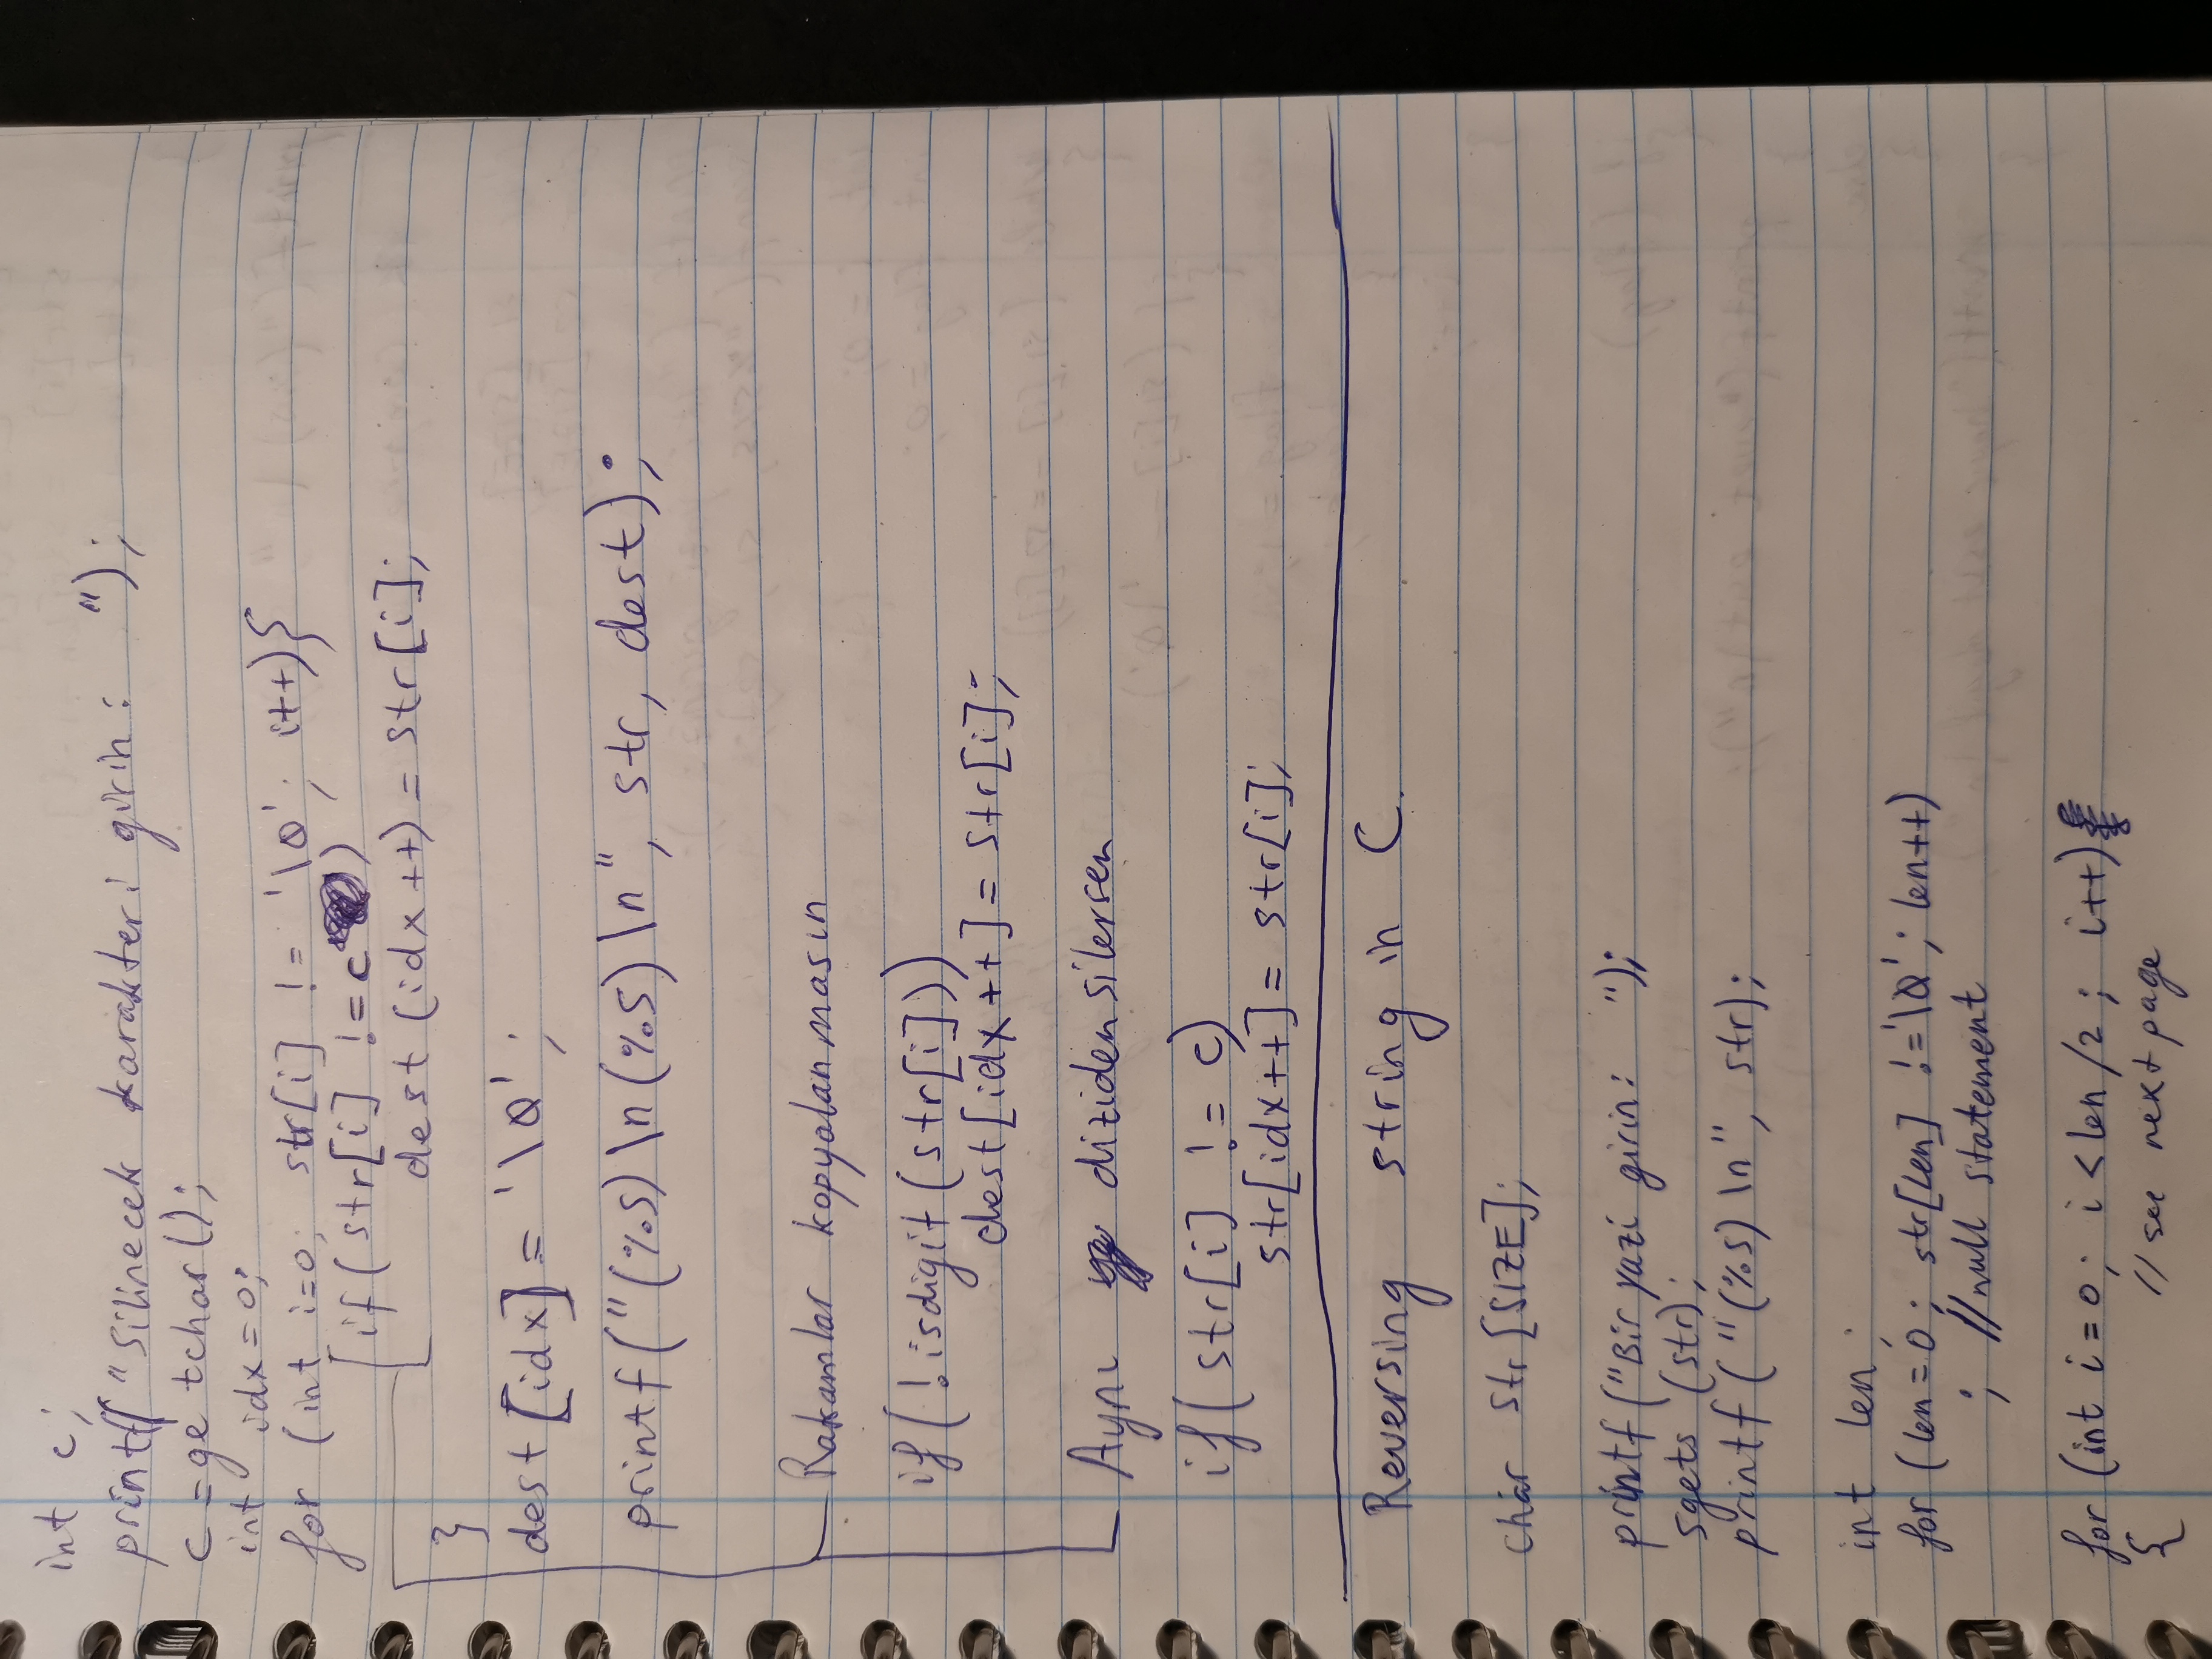 int c;
printf("Silinecek karakteri girin: ");
c = getchar();
int idx=0;
for (int i=0; str[i] != '\0'; i++)}
if(str[i] != c)
dest (idx++) = str[i];
}
dest[idx] = '\0';
printf("(%s)\n(%s)\n", str, dest);
Rakamlar kopyalanmasın
if(!isdigit(str[i]))
dest[idx++] = str[i];
Aynı diziden silersen
if(str[i] != c)
str[idx++] = str[i];
Reversing string in C.
char str[SIZE];
printf("Bir yazi girin: ");
sgets (str);
printf("(%s)\n", str);
int len;
for (len=0; str[len] != '\0'; len++)
; //null statement
for (int i=0; i<len/2; i++)
{ //see next page